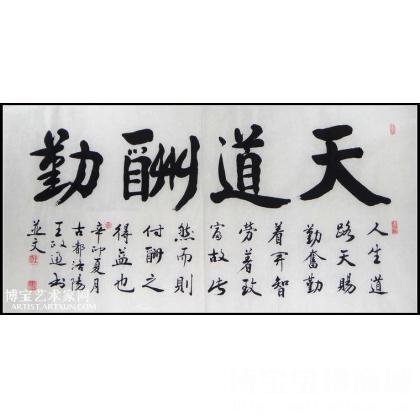 天道酬勤
人生道
路天賜
勤奮勤
着开智
劳著致
富故此
然而則
付酬之
得益也
辛卯夏月
古都洛陽
王政通书
並文
博宝艺术家网
ARTIST.ARTXUN.COM